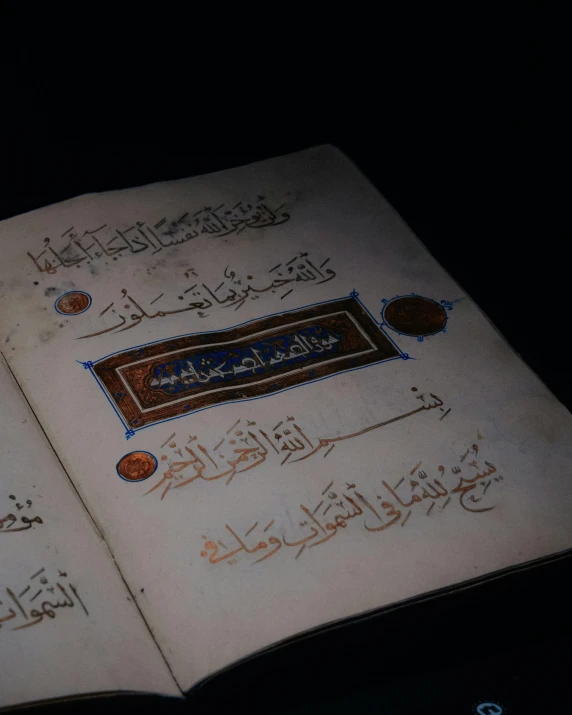 وَلَن يُؤَخِّرَ اللَّهُ نَفْسًا إِذَا جَاءَ أَجَلُهَا
وَاللَّهُ خَبِيرٌ بِمَا تَعْمَلُونَ
سورة
بِسْمِ اللَّهِ الرَّحْمَنِ الرَّحِيمِ
يُسَبِّحُ لِلَّهِ مَا فِي السَّمَوَاتِ وَمَا فِي
السَّمَوَاتِ